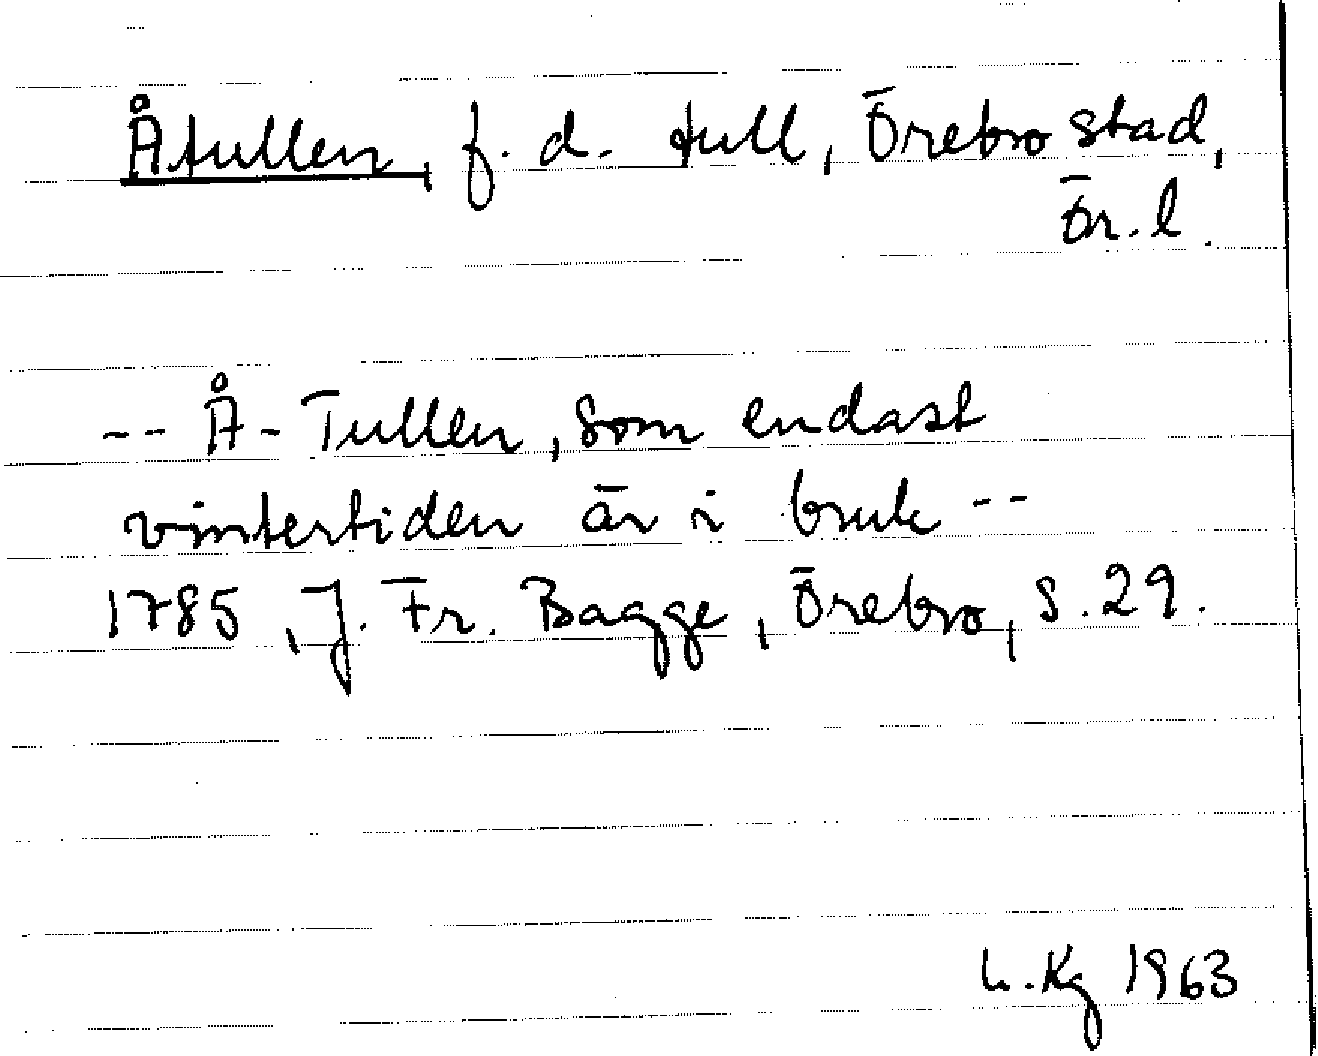 Åtullen, f. d. tull, Örebro stad,
Ör. l.
-- Å-Tullen, som endast
vintertiden är i bruk --
1785, J. Fr. Bagge, Örebro, s. 29.
Kg 1963